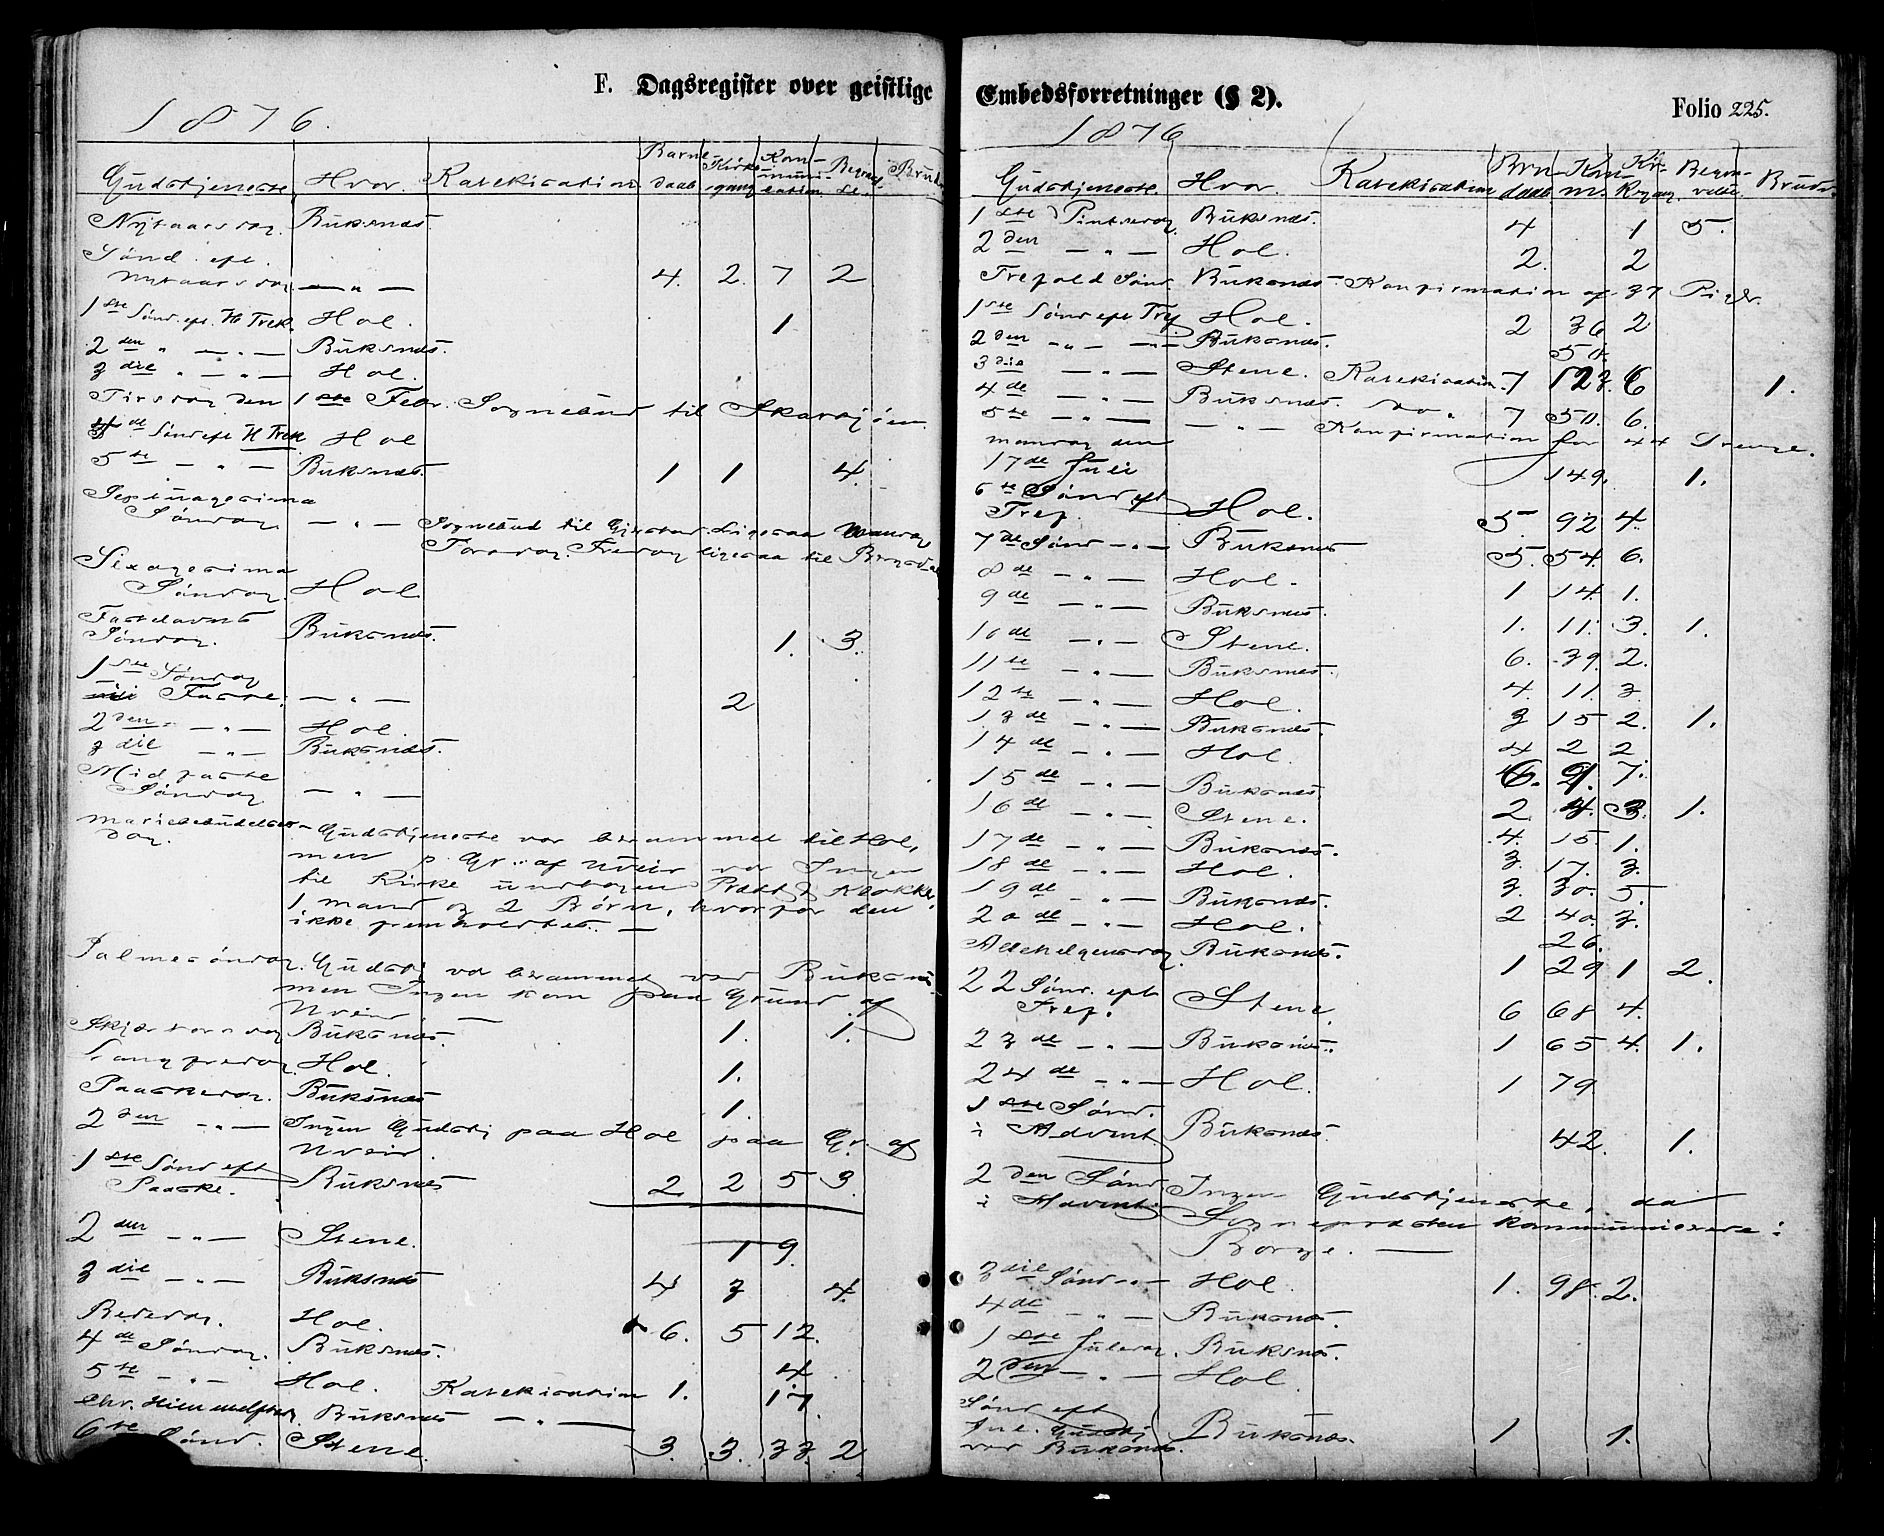 F. Dagsregister over geistlige
1876.
Gudstjeneste Hvor. Katekisation Barne daab Kirke gang Kommunikation Begravelse Brudv
Nytaarsdag. Buksnæs.
Sønd. eft.
Nytaarsdag — " — 4. 2. 7 2
1ste Sønd. eft. H Trek. Hol. 1
2den " — " — Buksnæs.
3die " — " — Hol.
Tirsdag den 1ste Febr. Sognebud til Skarsjøen
4de Sønd eft H Trek Hol
5te — " — Buksnæs. 1 1 4.
Septuagesima
Søndag. — " — Sognebud til Gjerstad. Ligesaa Mandag
Torsdag. Fredag ligesaa til
Sexagesima
Søndag. Hol
Fastelavns
Søndag. Buksnæs. 1. 3.
1ste Søndag
i Faste. — " — 2
2den — " — Hol.
3die — " — Buksnæs.
Midfaste
Søndag — " —
Mariebebudelses- Gudstjeneste var berammet til Hol,
dag. men p. Gr. af Uveir var Ingen
til Kirke undtagen Præst & Klokker,
1 mand og 2 Børn, hvorfor den
ikke fremholdtes. —
Palmesøndag. Gudstj var berammet ved Buksnæs
men Ingen kom paa Grund af
Uveir. —
Skjærtorsdag Buksnæs. 1. 1.
Langfredag Hol. 1.
Paaskedag. Buksnæs 1.
2den — " — Ingen Gudstj paa Hol paa Gr. af
Uveir.
1ste Sønd eft
Paaske. Buksnæs 2 2 5 3.
2den — " — Stene. 1 9.
3die — " — Buksnæs 4 3 4.
Bededag. Hol. 6. 5 12.
4de Søndag. Buksnæs. 4
5te — " — Hol. Katekisation 1. 17.
Chr. Himmelfartsd. Buksnæs — " —
6te Sønd. Stene. 3. 3. 33. 2
Embedsforretninger (§ 2).
Folio 225.
1876
Gudstjeneste Hvor. Katekisation Brn daab Km m. Kir Kgang. Begravelse. Brudv.
1ste Pintsedag Buksnæs. 4 1 5.
2den — " — Hol. 2. 2
Trefold Sønd. Buksnæs — Konfirmation af 37 Piger.
1ste Sønd eft Tref Hol. 2 36 2
2den — " — Buksnæs. 50.
3die — " — Stene. Katekisation. 7 123. 6 1.
4de — " — Buksnæs. do " 7 50. 6.
5te — " — — " — Konfirmation for 44 Drenge.
mandag den
17de Juli 149. 1.
6te Sønd eft
Tref. Hol. 5. 92 4.
7de Sønd — " — Buksnæs 5. 54. 6.
8de — " — Hol. 1 14. 1.
9de — " — Buksnæs. 1. 11. 3. 1.
10de — " — Stene. 6. 39. 2.
11te — " — Buksnæs. 4. 11. 3
12te — " — Hol. 3 15 2. 1.
13de — " — Buksnæs. 4 2 2
14de — " — Hol. 6. 21. 7.
15de — " — Buksnæs. 2. 4. 3. 1.
16de — " — Stene. 4. 15. 1.
17de — " — Buksnæs. 3. 17. 3.
18de — " — Hol. 3. 30. 5.
19de — " — Buksnæs. 2 40. 3.
20de — " — Hol. 26.
Allehelgensdag Buksnæs. 1 29 1 2.
22 Sønd. eft
Tref. Stene. 6 68 4.
23de — " — Buksnæs. 1 65 4. 1.
24de — " — Hol. 1 79.
1ste Sønd.
i Advent Buksnæs. 42. 1.
2den Sønd Ingen Gudstjeneste, da
i Advent. Sognepræsten kommunicerede i
Borge. —
3die Sønd — " — Hol 1. 98. 2.
4de — " — Buksnæs.
1ste Juledag. Buksnæs.
2den — " — Hol.
Sønd eft
Jul. Gudstj Buksnæs. 1 1.
ved Buksnæs.